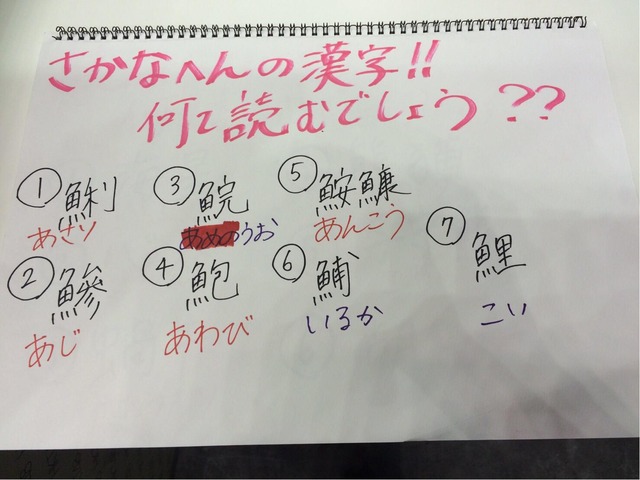 さかなへんの漢字!!
何て読むでしょう??
① 鯏
あさり
② 鰺
あじ
③ 鯇
あめのうお
④ 鮑
あわび
⑤ 鮟鱇
あんこう
⑥ 鯆
いるか
⑦ 鯉
こい